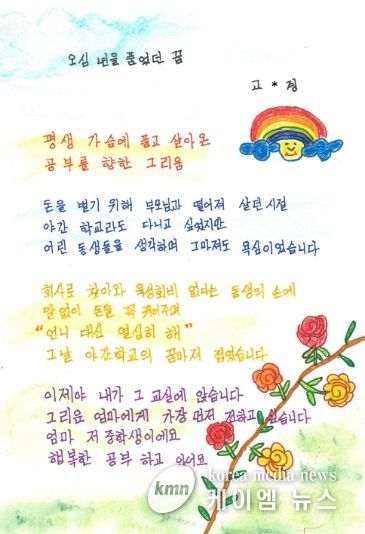 오십 년을 품었던 꿈
고 * 정
평생 가슴에 품고 살아온
공부를 향한 그리움
돈을 벌기 위해 부모님과 떨어져 살던 시절
야간 학교라도 다니고 싶었지만
어린 동생들을 생각하며 그마저도 욕심이었습니다
회사로 찾아와 육성회비 없다는 동생의 손에
말없이 돈을 꼭 쥐어주며
"언니 대신 열심히 해"
그날 야간학교의 꿈마저 접었습니다
이제야 내가 그 교실에 앉습니다
그리운 엄마에게 가장 먼저 전하고 싶습니다
엄마 저 중학생이에요
행복한 공부 하고 있어요
kmn
korea media news
케이엠 뉴스